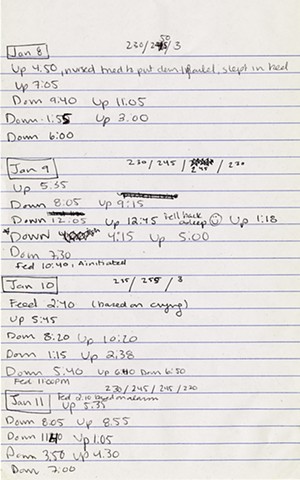 Jan 8 230/245/3
50
Up 4:50, nursed tried to put down, slept in bed
Up 7:05
Down 9:40 Up 11:05
Down 1:55 Up 3:00
Down 6:00
Jan 9 230/245/245/230
Up 5:35
Down 8:05 Up 9:15
Down 12:05 Up 12:45 fell back asleep ☺ Up 1:18
* Down 4:15 Up 5:00
Down 7:30
Fed 10:40, A initiated
Jan 10 255/3
Feed 2:40 (based on crying)
Up 5:45
Down 8:20 Up 10:20
Down 1:15 Up 2:38
Down 5:40 Up 6:40 Down 6:50
Fed 11:00pm
230/245/245/230
Jan 11 Fed 2:10 based
Up 5:35
Down 8:05 Up 8:55
Down 11:40 Up 1:05
Down 3:50 Up 4:30
Down 7:00